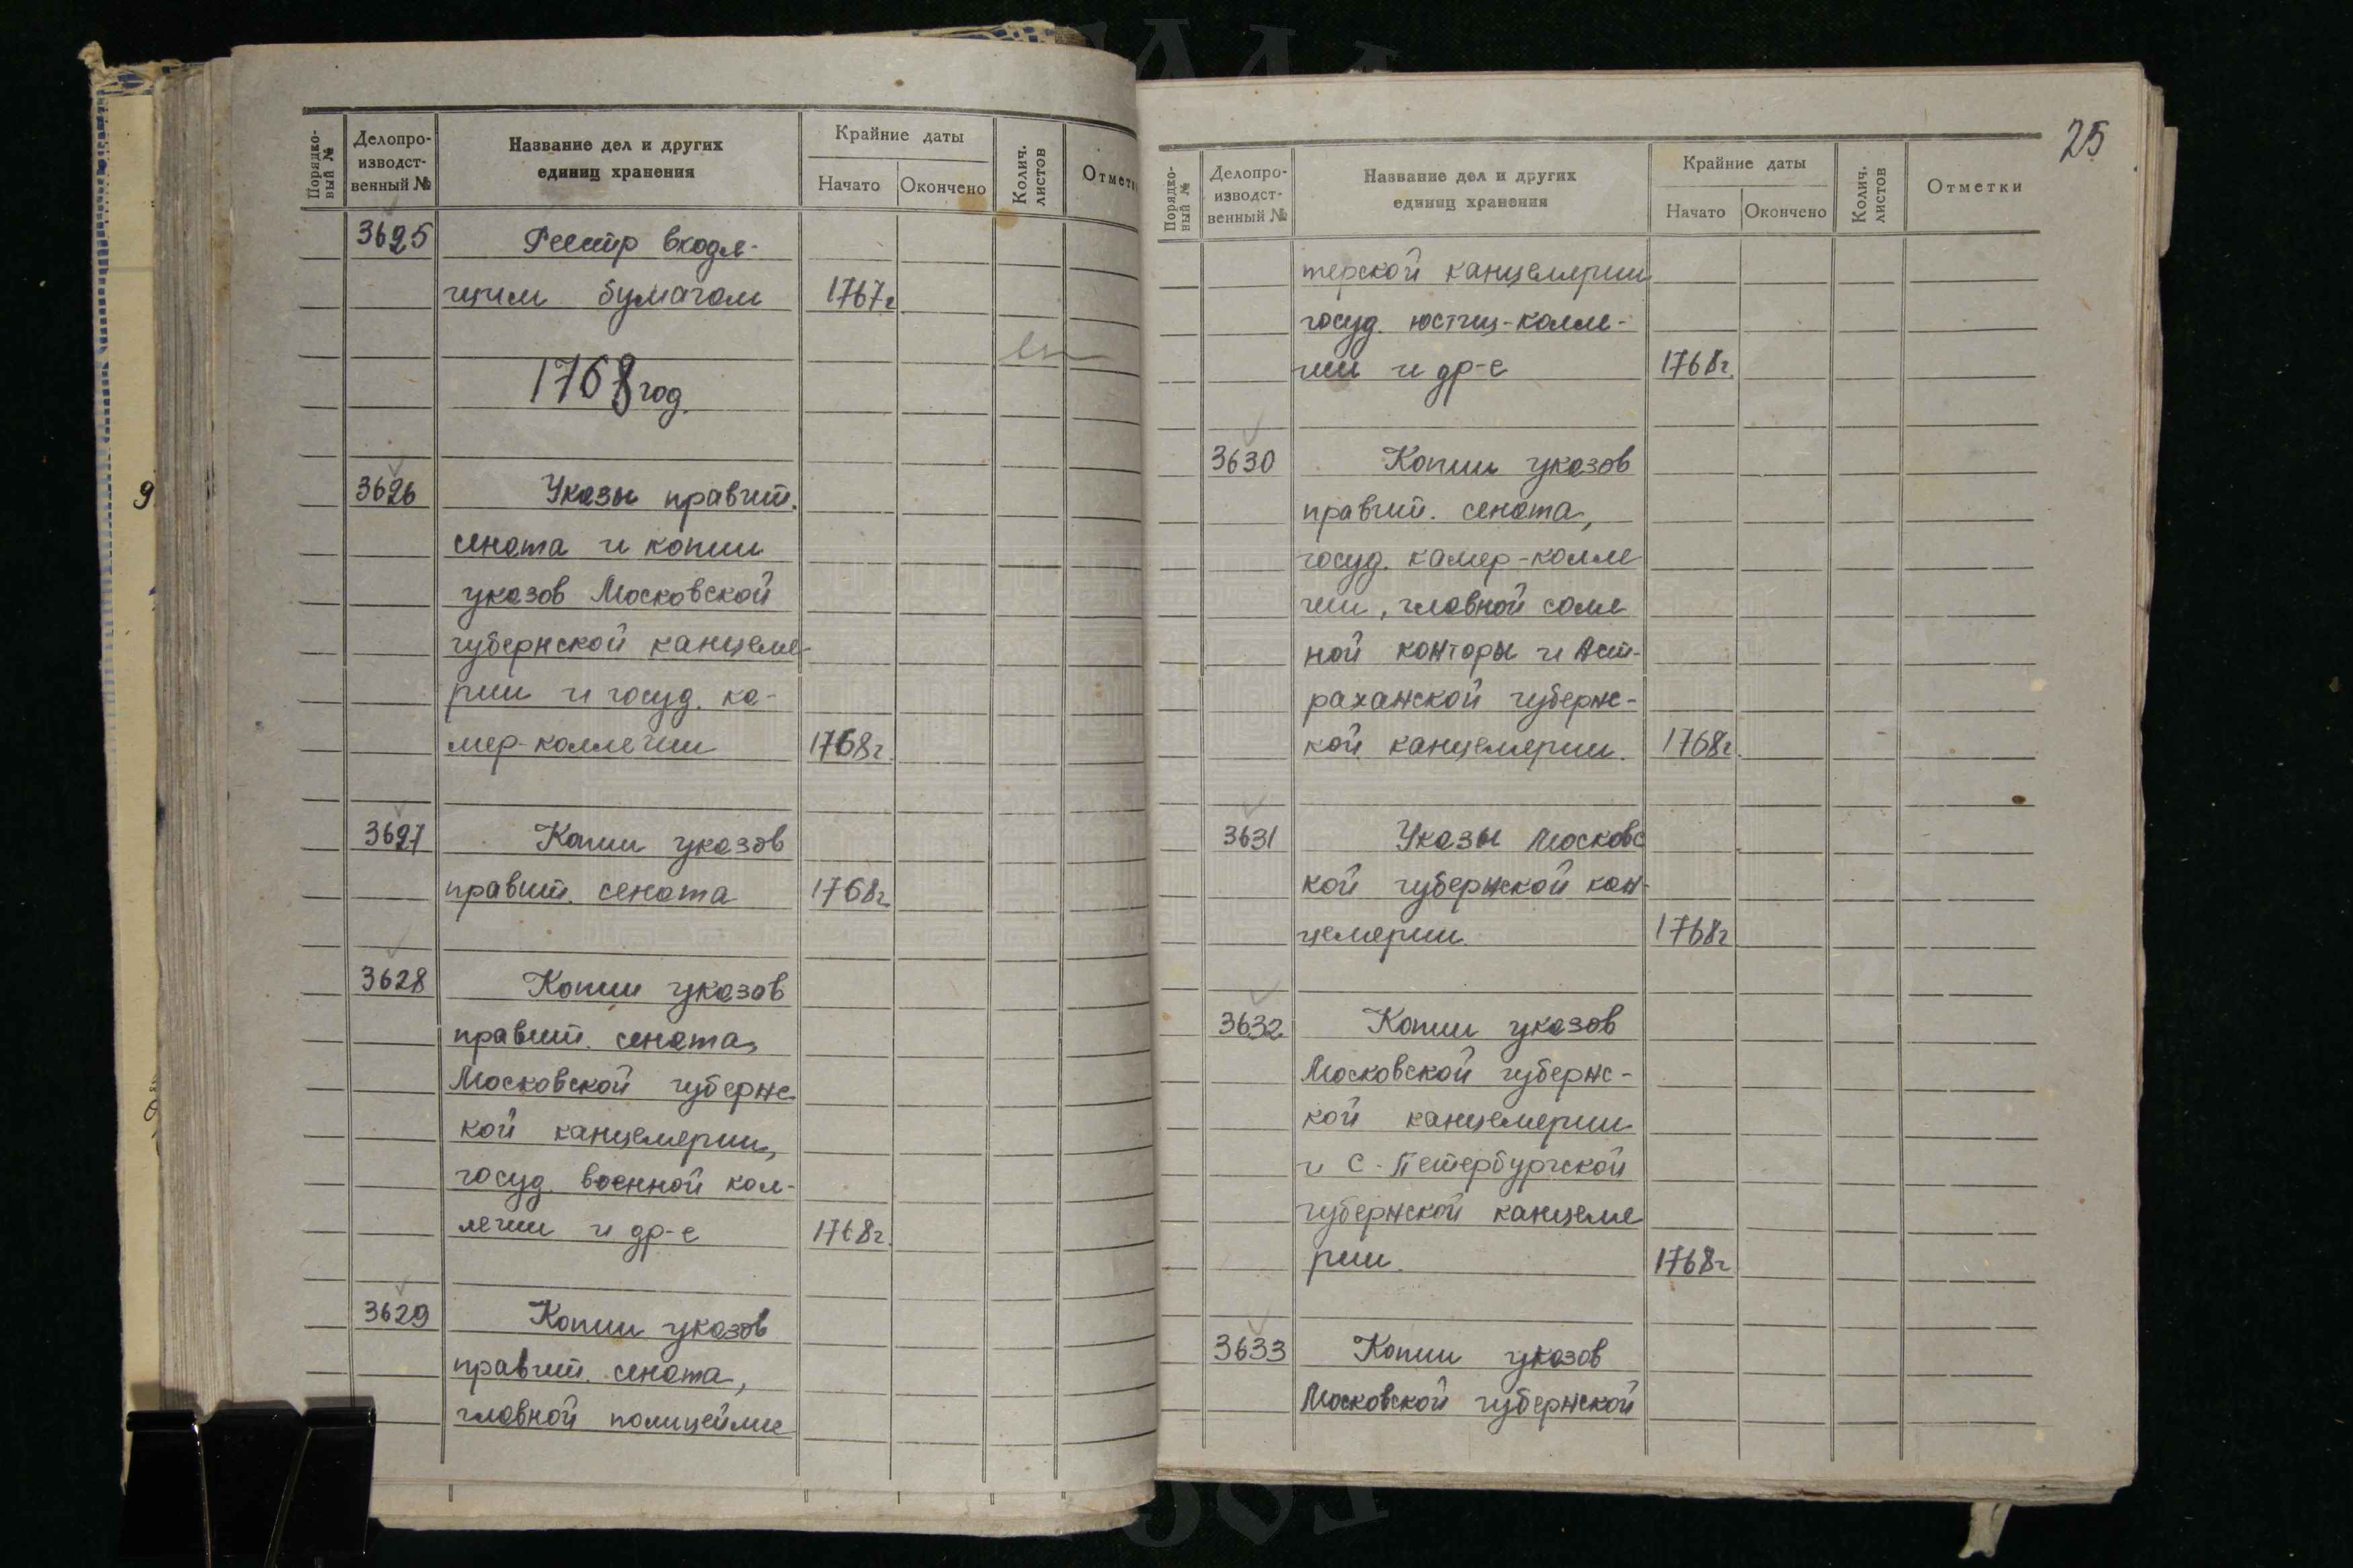 Порядко-
вый №
Делопро-
изводст-
венный №
Название дел и других
единиц хранения
Крайние даты
Начато
Окончено
Колич.
листов
Отметк
3625 Реестр входя-
щим бумагам 1767г
1768 год.
3626 Указы правит.
сената и копии
указов Московской
губернской канцеля-
рии и госуд. ка-
мер-коллегии 1768г.
3627 Копии указов
правит. сената 1768г.
3628 Копии указов
правит. сената,
Московской губернс-
кой канцелярии,
госуд. военной кол-
легии и др-е 1768г.
3629 Копии указов
правит. сената,
главной полицейме
25
Порядко-
вый №
Делопро-
изводст-
венный №
Название дел и других
единиц хранения
Крайние даты
Начато
Окончено
Колич.
листов
Отметки
терской канцелярии
госуд. юстиц-колле-
гии и др-е 1768г.
3630 Копии указов
правит. сената,
госуд. камер-колле
гии, главной соля
ной конторы и Аст-
раханской губернс-
кой канцелярии. 1768г.
3631 Указы Московс
кой губернской кан-
целярии 1768г
3632 Копии указов
Московской губернс-
кой канцелярии
и С-Петербургской
губернской канцеля
рии. 1768г
3633 Копии указов
Московской губернской